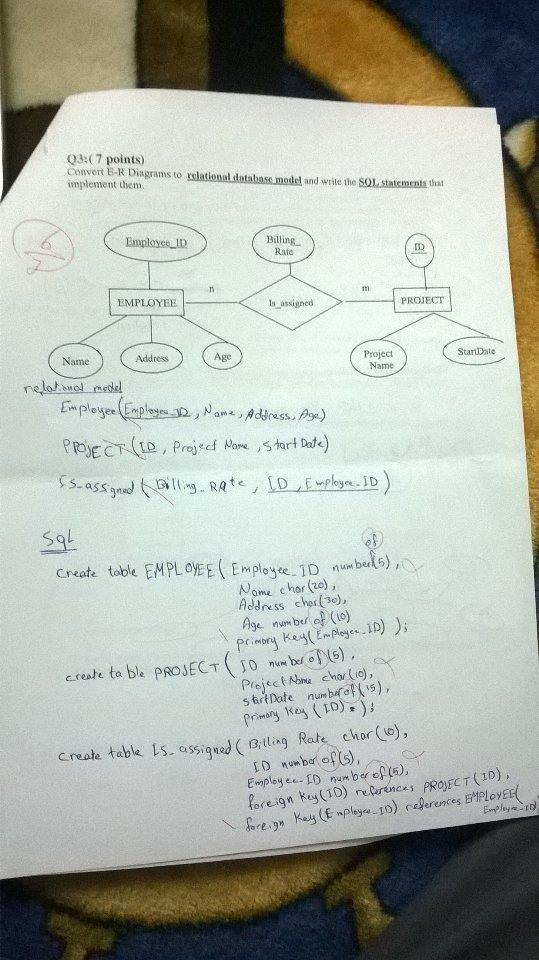 Q3:( 7 points)
Convert E-R Diagrams to relational database model and write the SQL statements that
implement them.
6
7
Employee_ID
Billing_
Rate
ID
n
m
EMPLOYEE
Is_assigned
PROJECT
Name
Address
Age
Project
Name
StartDate
relational model
Employee(Employee_ID, Name, Address, Age)
PROJECT(ID, Project Name, Start Date)
Is_assgned(Billing_Rate, ID, Employee_ID)
Sql
of
create table EMPLOYEE(Employee_ID number(5),
Name char(20),
Address char(30),
Age number of (10)
primary Key(Employee_ID) );
create table PROJECT(ID number of (5),
Project Name char(10),
startDate number of (15),
primary Key (ID) );
Create table Is_assigned(Billing Rate char(10),
ID number of(5),
Employee_ID number of(5),
foreign Key(ID) references PROJECT(ID),
foreign Key(Employee_ID) references EMPLOYEE(
Employee_ID)